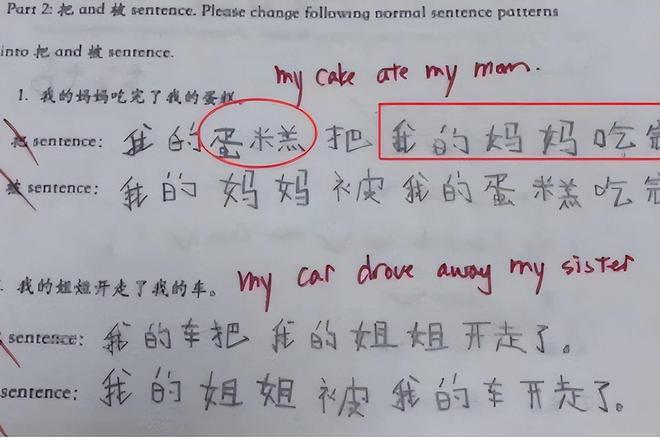 Part 2: 把 and 被 sentence. Please change following normal sentence patterns
into 把 and 被 sentence.
my cake ate my mom.
1. 我的妈妈吃完了我的蛋糕
把 sentence: 我的蛋糕把我的妈妈吃完
被 sentence: 我的妈妈被我的蛋糕吃完
my car drove away my sister
我的姐姐开走了我的车。
sentence: 我的车把我的姐姐开走了。
sentence: 我的姐姐被我的车开走了。